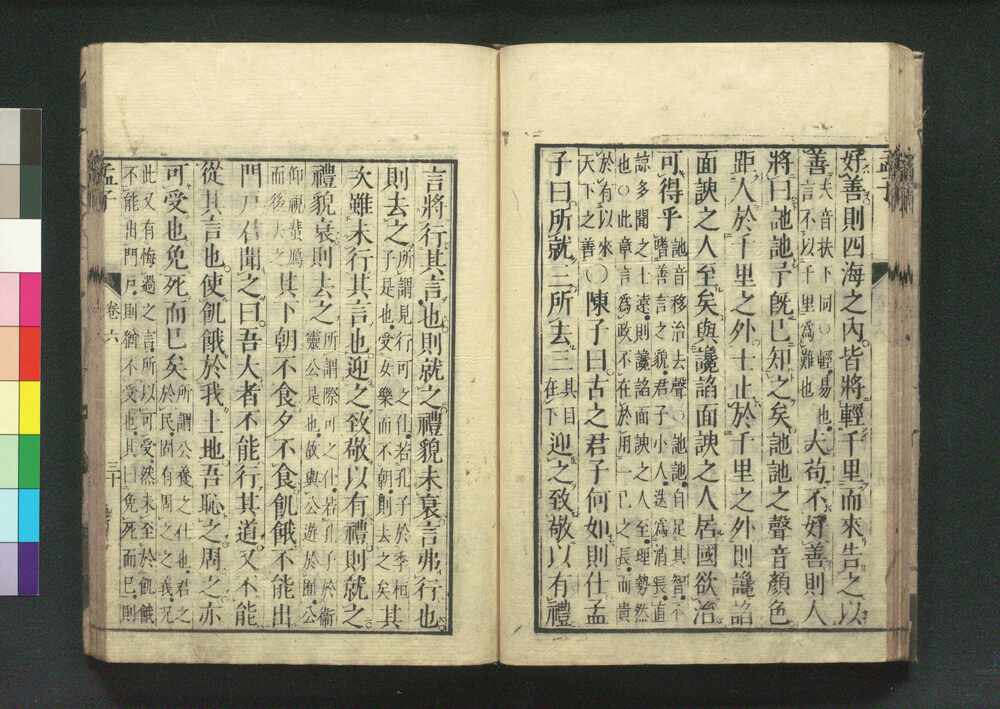 孟子
好善則四海之內皆將輕千里而來告之以
善
夫音扶下同○輕易也
言不以千里爲難也
夫苟不好善則人
將曰訑訑予旣已知之矣訑訑之聲音顏色
距人於千里之外士止於千里之外則讒諂
面諛之人至矣與讒諂面諛之人居國欲治
可得乎
訑音移治去聲○訑訑自足其智不
嗜善言之貌君子小人迭爲消長直
諒多聞之士遠則讒諂面諛之人至理勢然
也○此章言爲政不在於用一己之長而貴
於有以來
天下之善
○陳子曰古之君子何如則仕孟
子曰所就三所去三
其目
在下
迎之致敬以有禮
言將行其言也則就之禮貌未衰言弗行也
則去之
所謂見行可之仕若孔子於季桓
子是也受女樂而不朝則去之矣
其
次雖未行其言也迎之致敬以有禮則就之
禮貌衰則去之
所謂際可之仕若孔子於衞
靈公是也故與公遊於囿公
仰視蜚鴈
而後去之
其下朝不食夕不食飢餓不能出
門戶君聞之曰吾大者不能行其道又不能
從其言也使飢餓於我土地吾恥之周之亦
可受也免死而已矣
所謂公養之仕也君之
於民固有周之之義况
此又有悔過之言所以可受然未至於飢餓
不能出門戶則猶不受也其曰免死而已則
孟子
卷六
三十